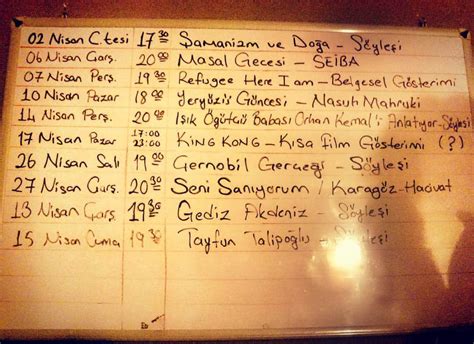 02 Nisan C.tesi 17 30 Şamanizm ve Doğa - Söyleşi
06 Nisan Çarş. 20 00 Masal Gecesi - SEİBA
07 Nisan Perş. 19 30 Refugee Here I am - Belgesel Gösterimi
10 Nisan Pazar 18 00 Yeryüzü Güncesi - Nasuh Mahruki
14 Nisan Perş. 20 00 Işık Öğütçü Babası Orhan Kemal'i Anlatıyor-Söyleşi
17 Nisan Pazar 17:00 23:00 KING KONG - Kısa Film Gösterimi (?)
26 Nisan Salı 19 00 Çernobil Gerçeği - Söyleşi
27 Nisan Çarş. 20 30 Seni Sanıyorum / Karagöz-Hacivat
13 Nisan Çarş. 19 30 Gediz Akdeniz - Söyleşi
15 Nisan Cuma 19 30 Tayfun Talipoğlu - Söyleşi